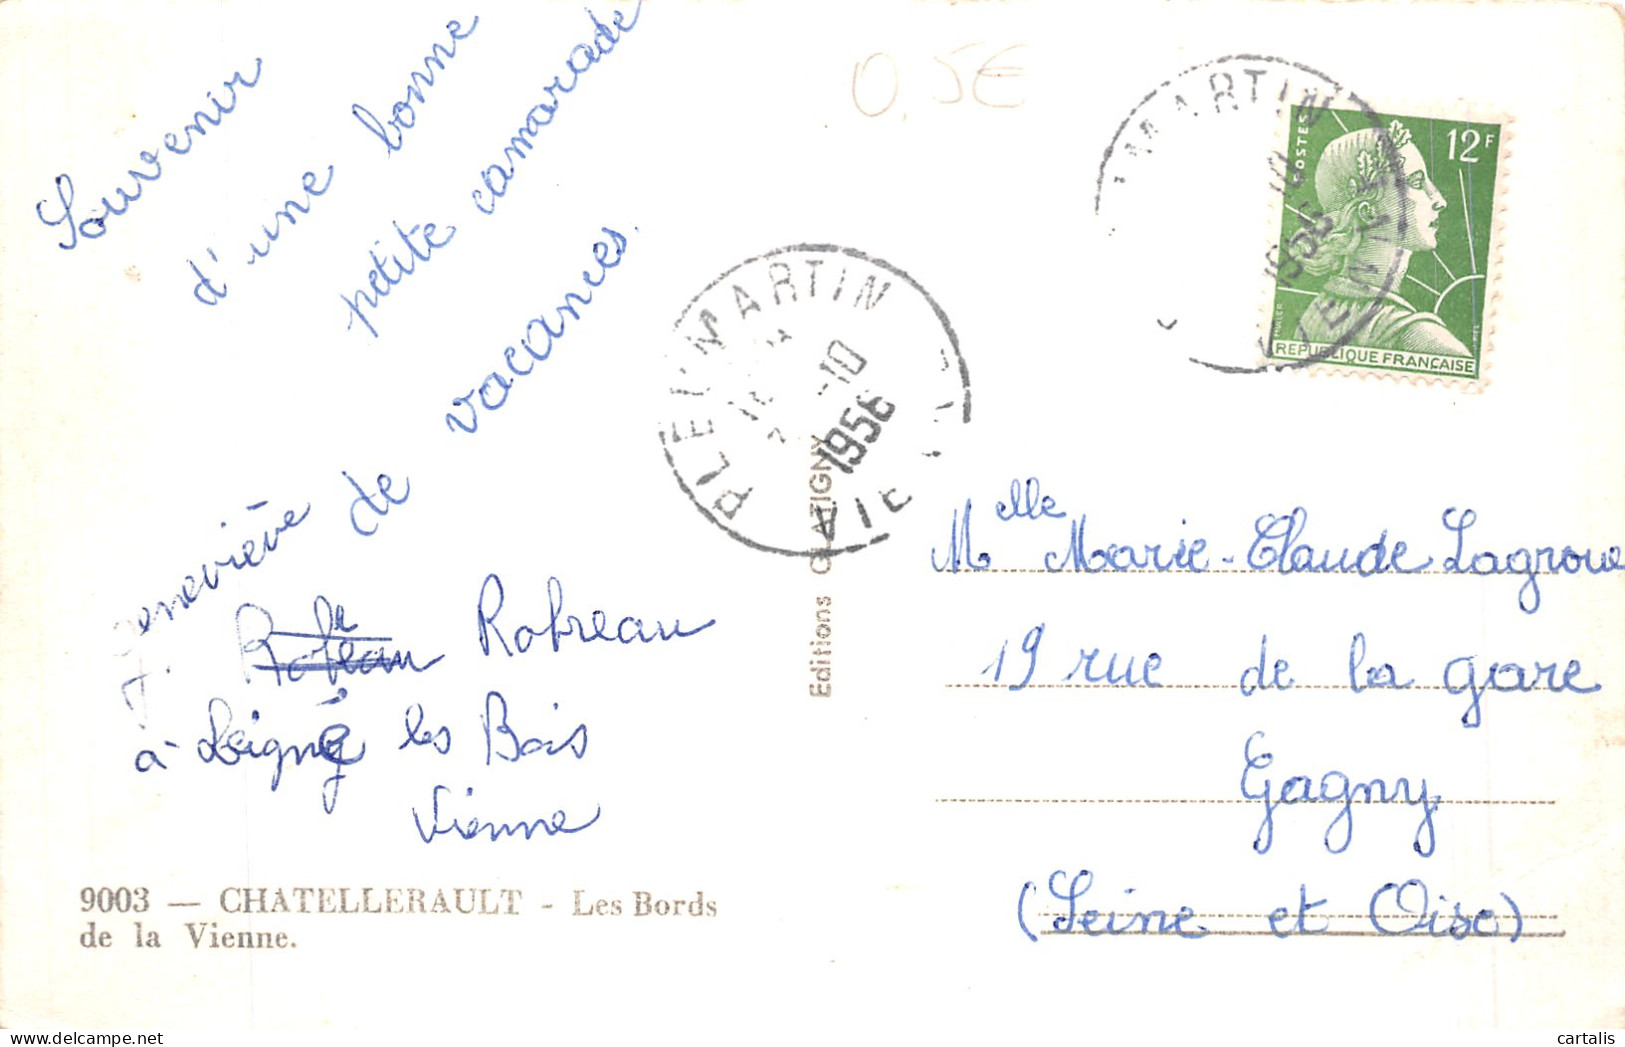 Souvenir
d'une bonne
petite camarade
de vacances.
Geneviève
Robreau
à Leigné les Bois
Vienne
9003 — CHATELLERAULT - Les Bords
de la Vienne.
Editions GLATIGNY
PLEUMARTIN
-10
1956
VIENNE
0,5€
MARTIN
10
1956
VIENNE
POSTES
12F
MULLER
REPUBLIQUE FRANÇAISE
Melle Marie-Claude Lagroue
19 rue de la gare
Gagny
(Seine et Oise)
cartalis.com